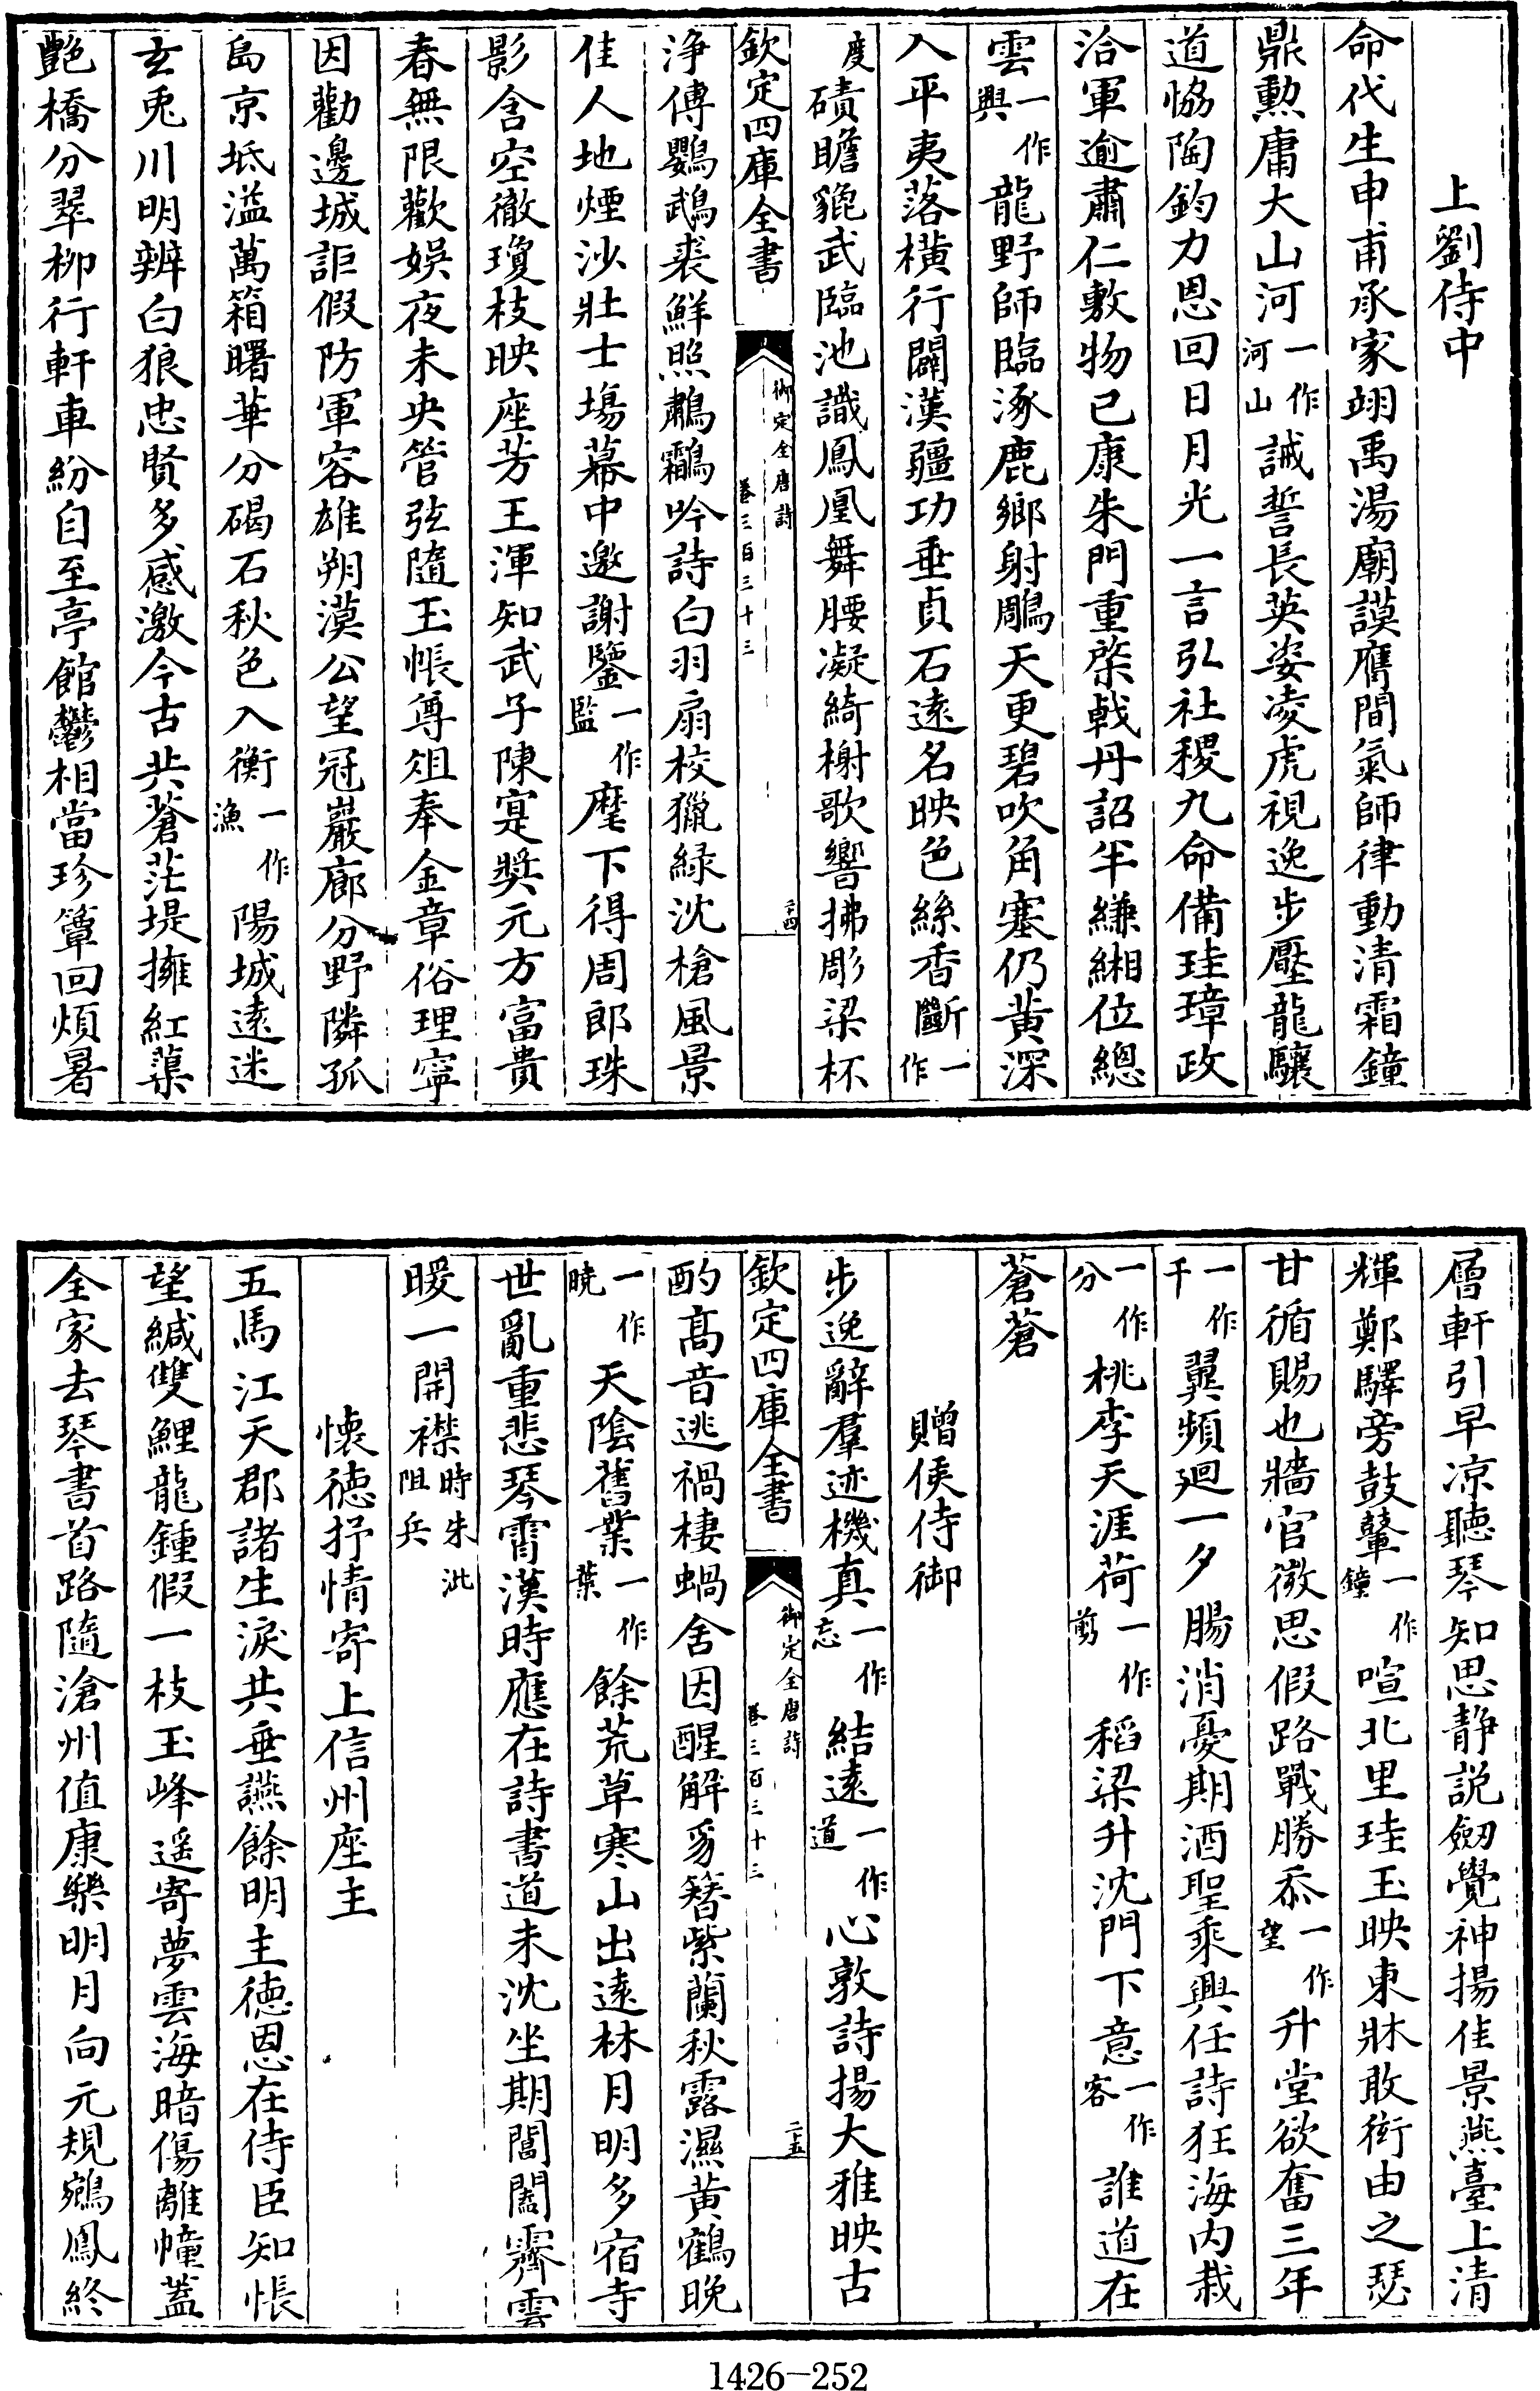 上劉侍中
命代生申甫承家翊禹湯廟謨膺間氣師律動清霜鐘
鼎勲庸大山河一作河山誠誓長英姿凌虎視逸步壓龍驤
道恊陶鈞力恩回日月光一言弘社稷九命備珪璋政
洽軍逾肅仁敷物已康朱門重棨戟丹詔半縑緗位總
雲一作輿龍野師臨涿鹿鄉射鵰天更碧吹角塞仍黄深
入平夷落横行闢漢疆功垂貞石遠名映色絲香斷一作
度磧瞻貔武臨池識鳳凰舞腰凝綺榭歌響拂彫梁杯
欽定四庫全書
御定全唐詩
卷三百三十三
二十四
浄傳鸚鵡裘鮮照鷫鸘吟詩白羽扇校獵緑沈槍風景
佳人地煙沙壯士場幕中邀謝鑒一作監麾下得周郎珠
影含空徹瓊枝映座芳王渾知武子陳寔奬元方富貴
春無限歡娱夜未央管弦隨玉帳尊俎奉金章俗理寧
因勸邊城詎假防軍容雄朔漠公望冠巖廊分野隣孤
島京坻溢萬箱曙華分碣石秋色入衡一作漁陽城遠迷
玄兎川明辨白狼忠賢多感激今古共蒼茫堤擁紅蕖
艶橋分翠柳行軒車紛自至亭館鬱相當珍簟回煩暑
層軒引早凉聽琴知思静説劒覺神揚佳景燕臺上清
輝鄭驛旁鼓鼙一作鐘喧北里珪玉映東牀敢衒由之瑟
甘循賜也牆官微思假路戰勝忝一作望升堂欲奮三年
一作千翼頻廻一夕腸消憂期酒聖乘興任詩狂海内栽
一作分桃李天涯荷一作剪稻梁升沈門下意一作客誰道在
蒼蒼
贈侯侍御
步逸辭羣迹機真一作忘結遠一作道心敦詩揚大雅映古
欽定四庫全書
御定全唐詩
卷三百三十三
二十五
酌髙音逃禍棲蝸舍因醒解豸簪紫蘭秋露濕黄鶴晚
一作曉天陰舊業一作葉餘荒草寒山出遠林月明多宿寺
世亂重悲琴霄漢時應在詩書道未沈坐期閶闔霽雲
暖一開襟時朱泚阻兵
懐德抒情寄上信州座主
五馬江天郡諸生淚共垂讌餘明主德恩在侍臣知悵
望緘雙鯉龍鍾假一枝玉峰遥寄夢雲海暗傷離幢蓋
全家去琴書首路隨滄州值康樂明月向元規鵷鳳終
1426-252